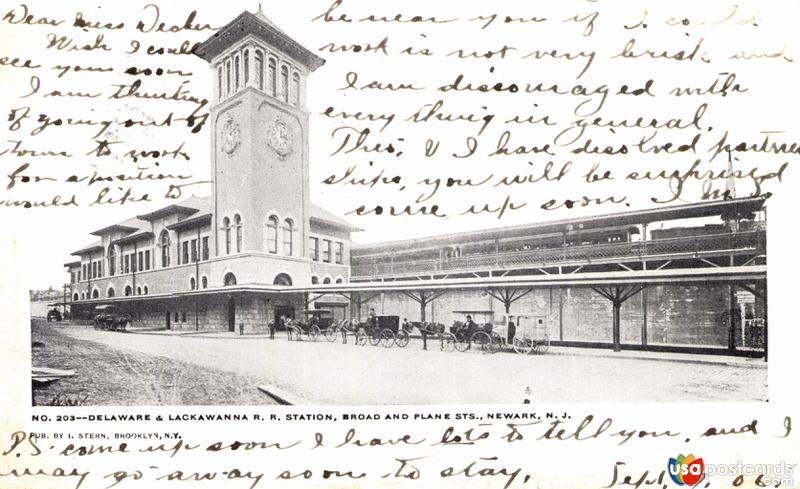 Dear Miss Decker
Wish I could
see you soon
I am thinking
of going out of
town to work
for a position
would like to
be near you if I could
work is not very brisk and
I am discouraged with
every thing in general.
Theo. & I have disolved partner
ships, you will be surprised
come up soon. I
NO. 203--DELAWARE & LACKAWANNA R. R. STATION, BROAD AND PLANE STS., NEWARK, N. J.
PUB. BY I. STERN, BROOKLYN, N.Y.
P.S. come up soon I have lots to tell you, and I
may go away soon to stay.
Sept. 06.
usapostcards.com